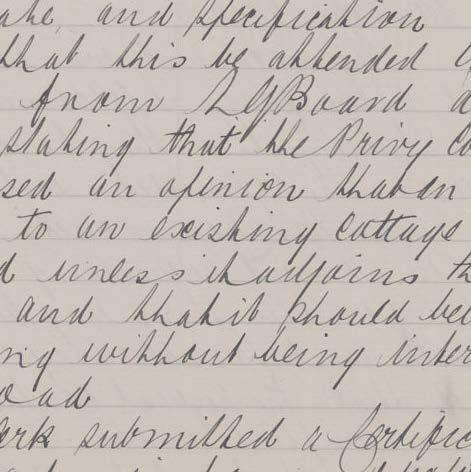 ate and specification
that this be attended
from L G Board a
stating that the Privy Co
sed an opinion that an
to an existing cottage
d unless it adjoins th
and that it should be
ng without being inter
oad
erk submitted a Certific